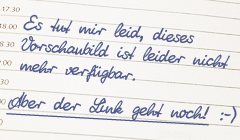 17.30
Es tut mir leid, dieses
18.00
Vorschaubild ist leider nicht
18.30
mehr verfügbar.
Aber der Link geht noch! :-)